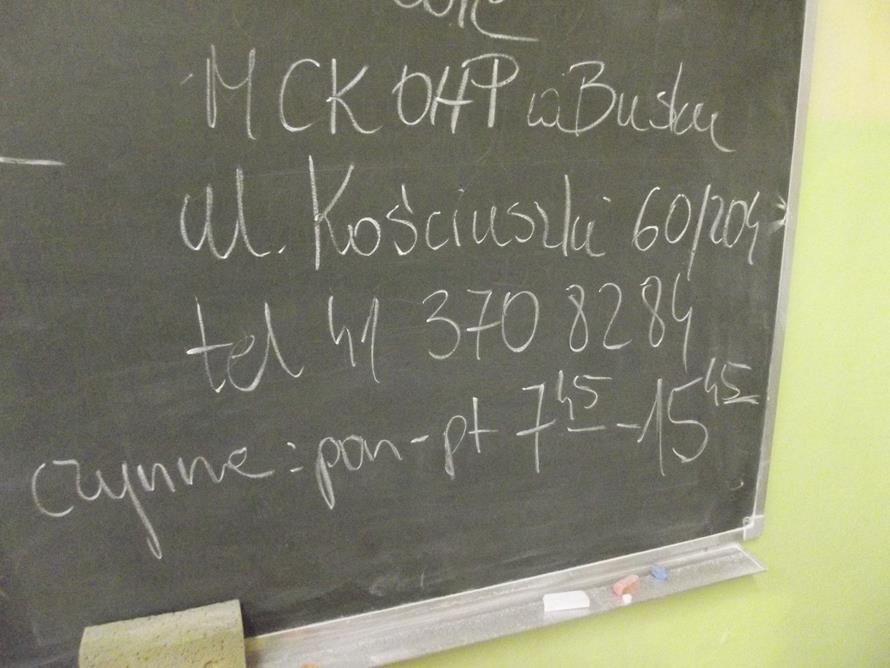 MCK OHP w Busku
ul. Kościuszki 60/204
tel 41 370 8284
czynne: pon-pt 7⁴⁵ - 15⁴⁵